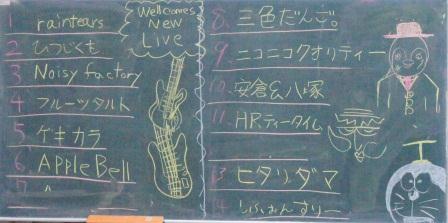 1 raintears
2 ひつじぐも
3 Noisy factory
4 フルーツタルト
5 ゲキカラ
6. Apple Bell
7
Wellcomes
New
Live
8. 三色だんご。
9. ニコニコクオリティー
10. 安倉&八塚
11. HRティータイム
13 ヒダリダマ
14